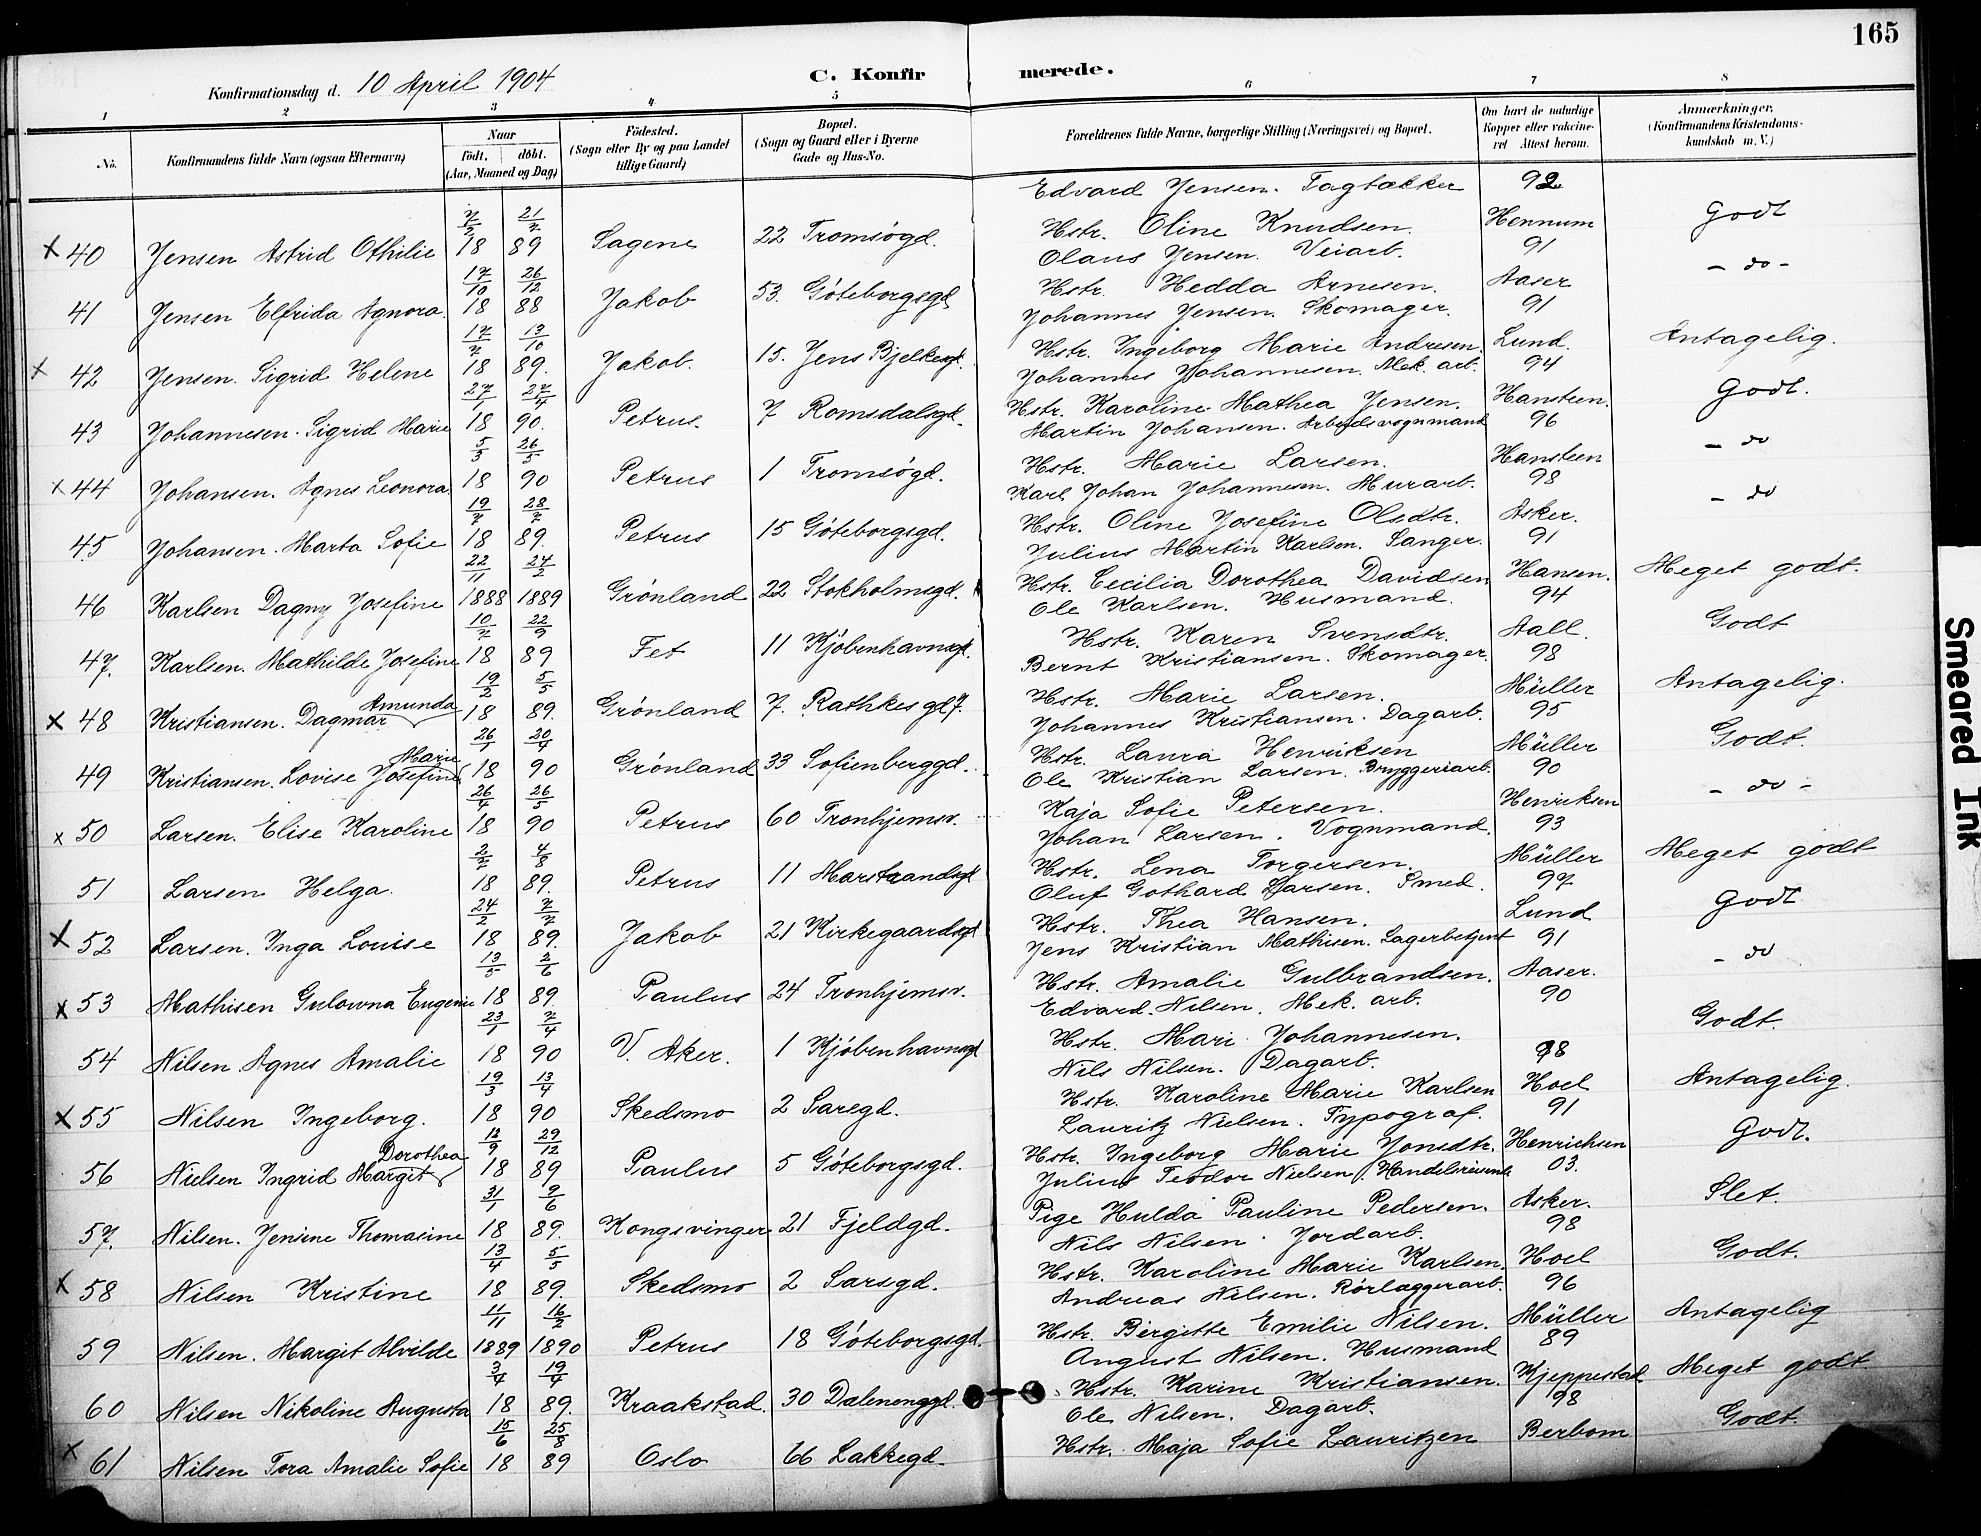 165
Konfirmationsdag d. 10 April 1904
C. Konfir merede.
1 2 3 4 5 6 7 8
No. Konfirmandens fulde Navn (ogsaa Efternavn) Naar födt. döbt. (Aar, Maaned og Dag) Födested. (Sogn eller By og paa Landet tillige Gaard) Bopæl. (Sogn og Gaard eller i Byerne Gade og Hus-No. Forældrenes fulde Navne, borgerlige Stilling (Næringsvei) og Bopæl. Om havt de naturlige Kopper eller vakcineret Attest herom. Anmærkninger. (Konfirmandens Kristendomskundskab m. V.)
Edvard Jensen. Tagtækker 92
x 40 Jensen Astrid Othilie 7/2 18 21/7 89 Sagene 22 Tromsøgd. Hstr. Oline Knudsen. Hennum Godt
Olaus Jensen. Veiarb. 91
41 Jensen Elfrida Agnora. 17/10 18 26/12 88 Jakob 53. Göteborgsgd Hstr. Hedda Arnesen. Aaser - do -
Johannes Jensen. Skomager. 91
x 42 Jensen. Sigrid Helene 17/7 18 13/10 89. Jakob. 15. Jens Bjelkesgd. Hstr. Ingeborg Marie Andresen. Lund. Antagelig.
Johannes Johannesen. Mek. arb. 94
43 Johannesen. Sigrid Marie 27/1 18 27/4 90. Petrus. 7 Romsdalsgd. Hstr. Karoline Mathea Jensen. Hansteen. Godt.
Martin Johansen. Arbeidsvognmand 96
x 44 Johansen. Agnes Leonora. 5/3 18 26/5 90 Petrus 1 Tromsøgd. Hstr. Marie Larsen. Hansteen - do
Karl Johan Johannesen. Murarb. 98
45 Johansen. Marta Sofie 19/7 18 28/7 89. Petrus 15 Göteborgsgd. Hstr. Oline Josefine Olsdtr. Asker. - do
Julius Martin Karlsen. Sanger. 91
46 Karlsen Dagny Josefine 22/11 1888 24/2 1889 Grönland 22 Stokholmsgd. Hstr. Cecilia Dorothea Davidsen Hansen. Meget godt.
Ole Karlsen. Husmand. 94
47. Karlsen. Mathilde Josefine 10/7 18 22/9 89 Fet 11 Kjöbenhavnsgd. Hstr. Karen Svensdtr. Aall. Godt
Bernt Kristiansen. Skomager. 98
x 48 Kristiansen. Dagmar Amunda 19/2 18 5/5 89. Grönland 7. Rathkes gd 7. Hstr. Marie Larsen. Müller Antagelig.
Johannes Kristiansen. Dagarb. 95
49 Kristiansen. Lovise Josefine Marie 26/1 18 20/4 90 Grönland 33 Sofienberggd. Hstr. Laura Henriksen Müller Godt.
Ole Kristian Larsen. Bryggeriarb. 90
x 50 Larsen. Elise Karoline 26/4 18 26/5 90 Petrus 60 Tronhjemsv. Kaja Sofie Petersen. Henriksen - do -
Johan Larsen. Vognmand. 93
51 Larsen Helga. 2/7 18 4/8 89. Petrus 11 Marstrandsgd Hstr. Lena Torgersen. Müller Meget godt
Oluf Gothard Larsen. Smed. 97
x 52 Larsen. Inga Louise 24/2 18 7/7 89. Jakob 21 Kirkegaardsgd Hstr. Thea Hansen. Lund Godt
Jens Kristian Mathisen. Lagerbetjent 91
x 53 Mathisen Gulowna Eugenie 13/5 18 2/6 89. Paulus 24 Tronhjemsv. Hstr. Amalie Gulbrandsen. Aaser. - do
Edvard Nilsen. Mek. arb. 90
54 Nilsen Agnes Amalie 23/1 18 7/4 90 V. Aker. 1 Kjöbenhavnsgd Hstr. Mari Johannesen. Godt.
Nils Nilsen. Dagarb. 98
x 55 Nilsen Ingeborg. 19/3 18 13/4 90 Skedsmo 2 Sarsgd. Hstr. Karoline Marie Karlsen Hoel Antagelig.
Lauritz Nielsen. Typograf. 91
56 Nielsen Ingrid Margit Dorothea 12/9 18 29/12 89 Paulus 5 Göteborgsgd. Hstr. Ingeborg Marie Jonsdtr. Henrichsen Godt.
Julius Teodor Nielsen. Handelsreisende 03.
57. Nilsen. Jensine Thomasine 31/1 18 9/6 89. Kongsvinger 21 Fjeldgd. Pige Hulda Pauline Pedersen. Asker. Slet.
Nils Nilsen. Jordarb. 98
x 58 Nilsen Kristine 13/4 18 5/5 89. Skedsmo 2 Sarsgd. Hstr. Karoline Marie Karlsen. Hoel Godt.
Andreas Nilsen. Rörlæggerarb. 96
59 Nilsen. Margit Alvilde 11/11 1889 16/2 1890 Petrus 18 Göteborgsgd. Hstr. Birgitte Emilie Nilsen. Müller Antagelig
August Nilsen. Husmand 89
60 Nilsen Nikoline Augusta 3/4 18 19/4 89. Kraakstad. 30 Dalenenggd. Hstr. Karine Kristiansen. Kjeppestad Meget godt
Ole Nilsen. Dagarb. 98
x 61 Nilsen Tora Amalie Sofie 15/6 18 25/8 89 Oslo 66 Lakkegd. Hstr. Maja Sofie Lauritzen Berbom Godt.
Smeared Ink